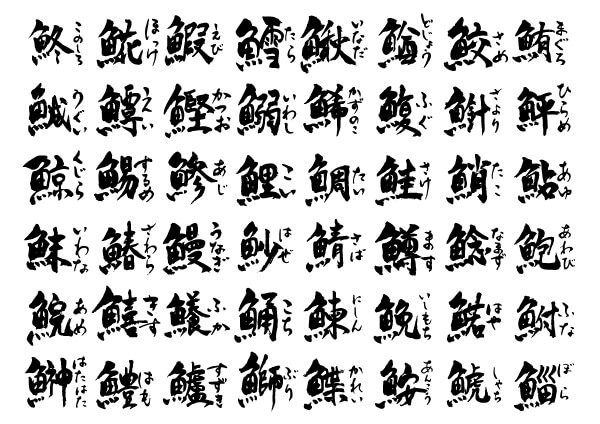 鮪まぐろ 鮃ひらめ 鮎あゆ 鮑あわび 鮒ふな 鯔ぼら
鮫さめ さより 鮹たこ 鯰なまず はや 鯱しゃち
鰌どじょう 鰒ふぐ 鮭さけ 鱒ます 鮸いしもち 鮟あんこう
鰍いなだ 鯑かずのこ 鯛たい 鯖さば 鰊にしん 鰈かれい
鱈たら 鰯いわし 鯉こい 魦はぜ 鯒こち 鰤ぶり
鰕えび 鰹かつお 鰺あじ 鰻うなぎ 鱶ふか 鱸すずき
𩸽ほっけ 鱏えい 鯣するめ 鰆さわら 鱚きす 鱧はも
鮗このしろ 鯎うぐい 鯨くじら 鮇いわな 鯇あめ 鰰はたはた